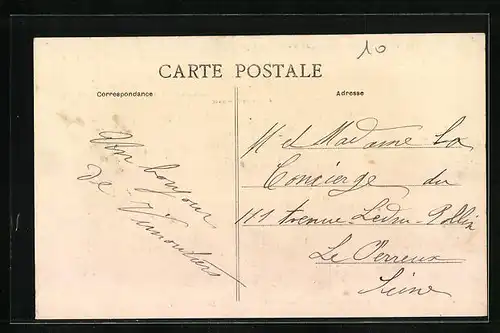 10
CARTE POSTALE
Correspondance
Adresse
Un bonjour
de Vimoutiers
M et Madame La
Concierge du
141 Avenue Ledru-Rollin
Le Perreux
Seine